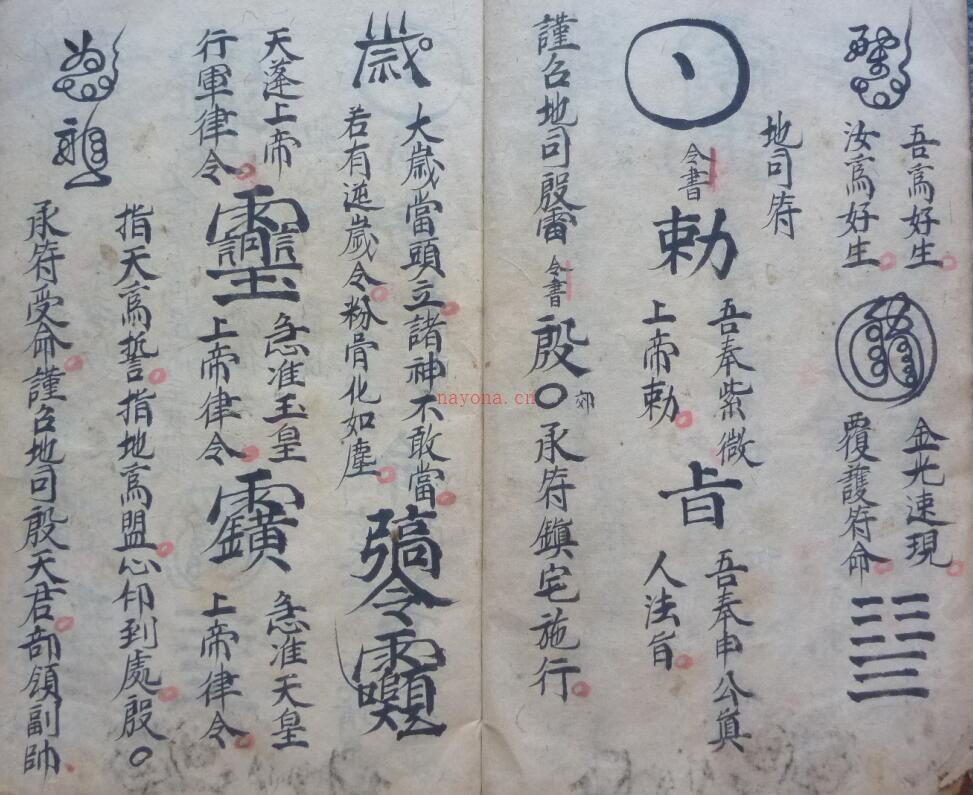 吾爲好生
汝爲好生
金光速現
覆護符命
地司符
令書
勅
吾奉紫微
上帝勅
旨
吾奉申公眞
人法旨
謹召地司殷雷
令書
殷〇
郊
承符鎮宅施行
大歲當頭立諸神不敢當
若有逆歲令粉骨化如塵
天蓬上帝
行軍律令
急准玉皇
上帝律令
急准天皇
上帝律令
指天爲誓指地爲盟心印到處殷〇
承符受命謹召地司殷天君部領副帥
nayona.cn